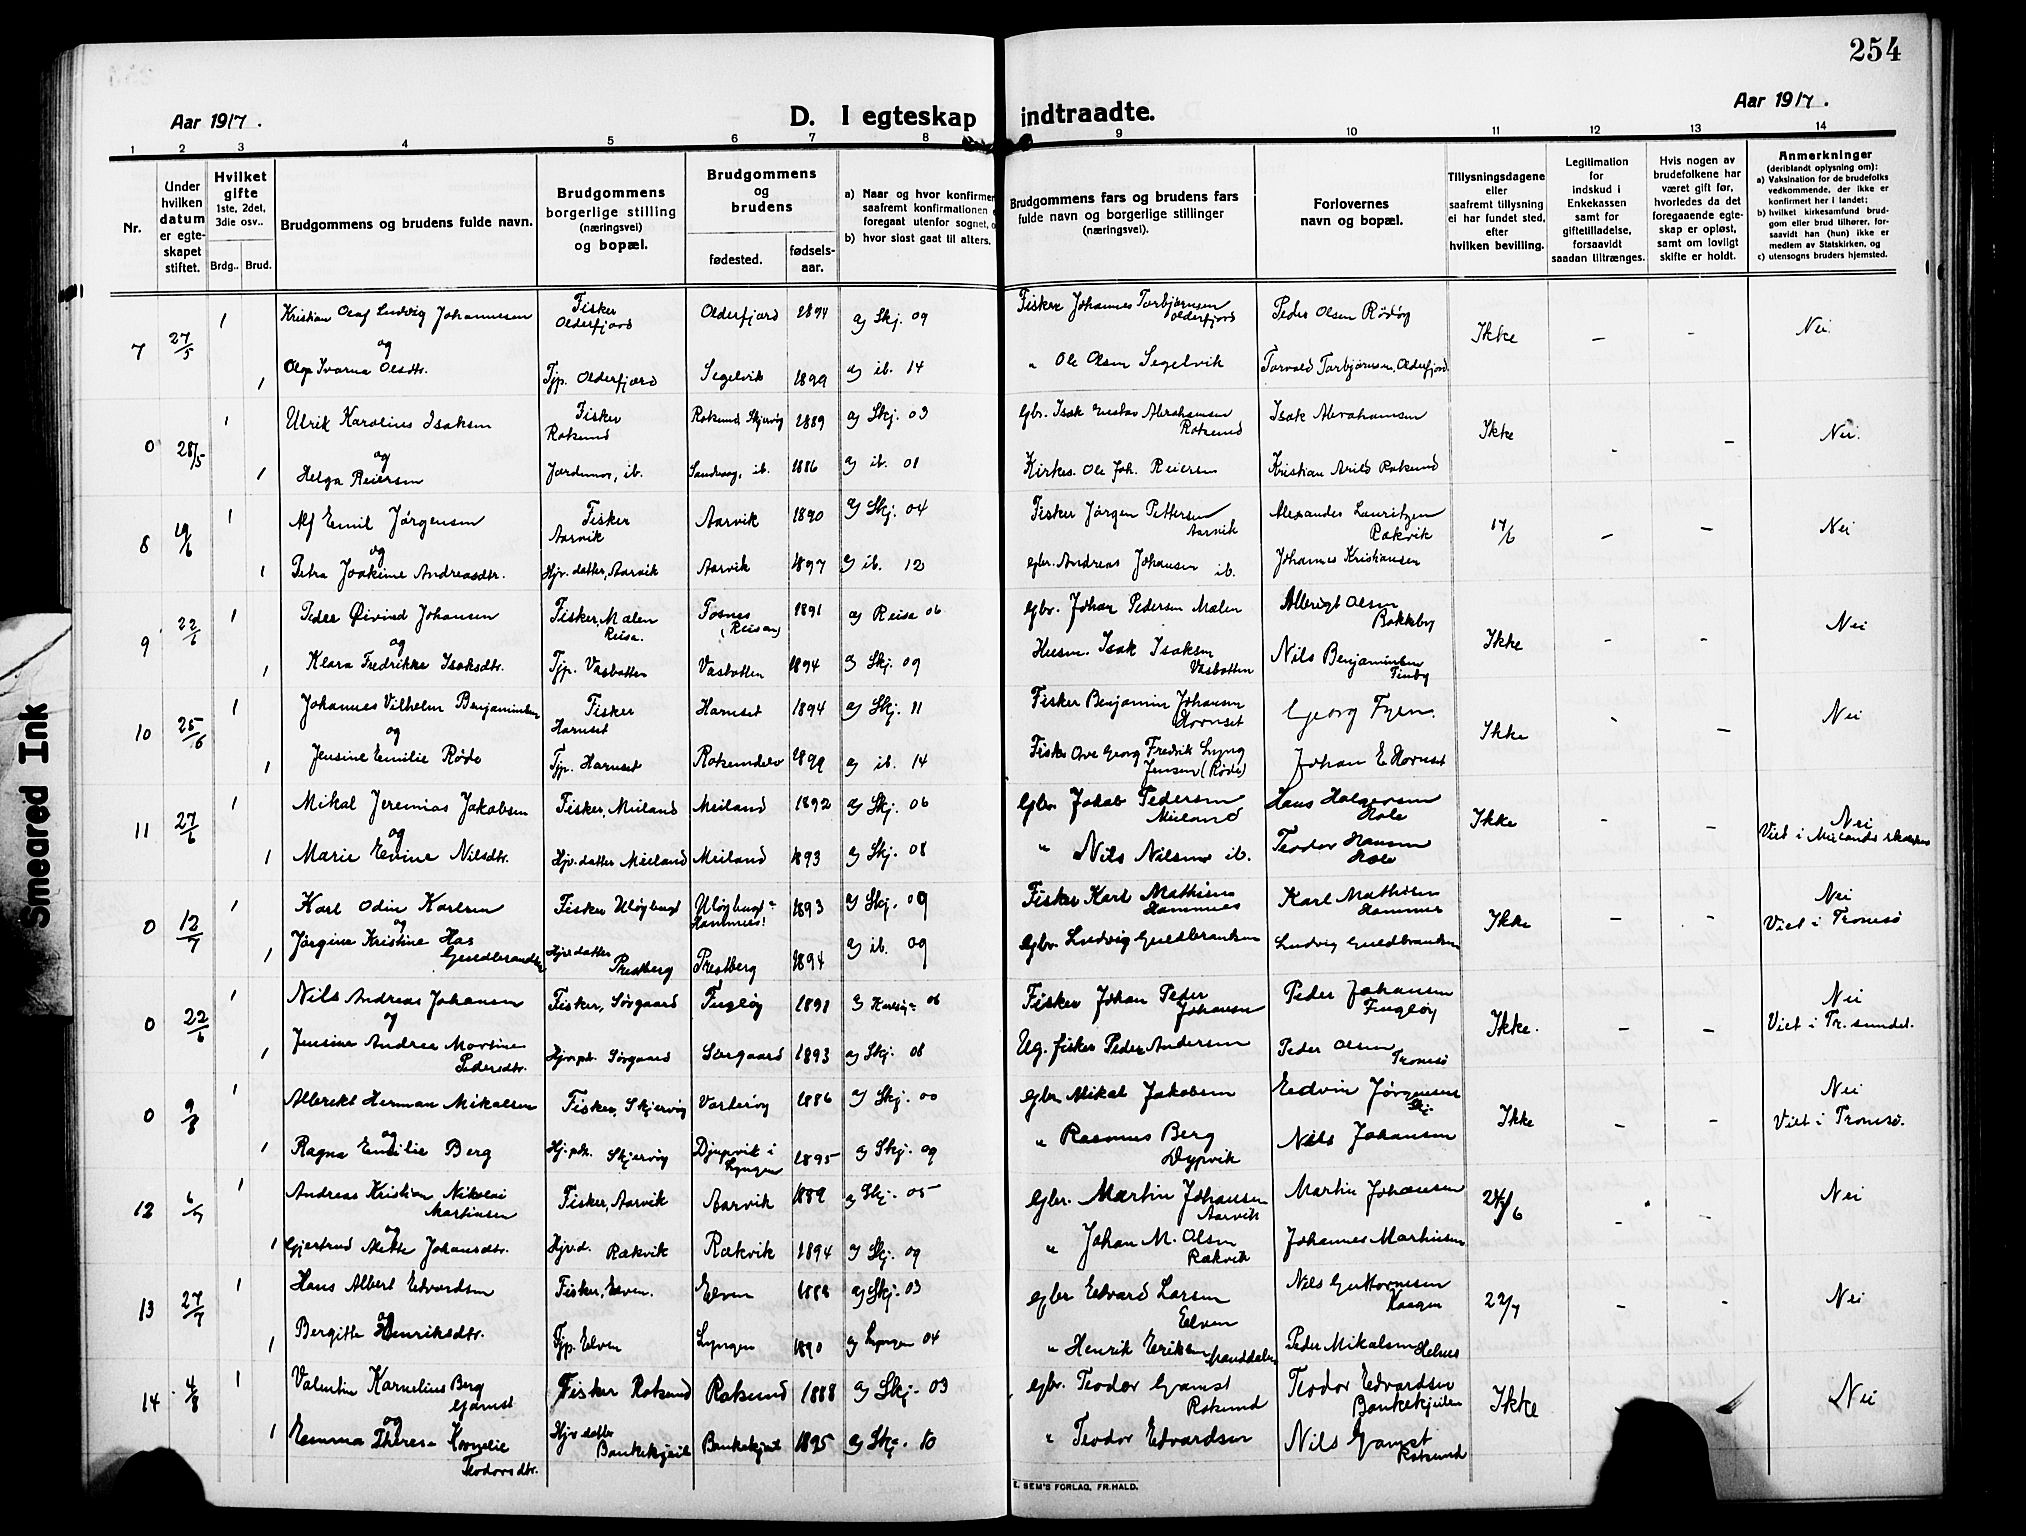 254
Aar 1917.
D. I egteskap indtraadte.
Aar 1917.
1 2 3 4 5 6 7 8 9 10 11 12 13 14
Nr.
Under hvilken datum er egteskapet stiftet.
Hvilket gifte 1ste, 2det, 3die osv..
Brdg.. Brud.
Brudgommens og brudens fulde navn.
Brudgommens borgerlige stilling (næringsvei) og bopæl.
Brudgommens og brudens
fødested. fødselsaar.
a) Naar og hvor konfirmer
saafremt konfirmationen
foregaat utenfor sognet, o
b) hvor sidst gaat til alters.
Brudgommens fars og brudens fars fulde navn og borgerlige stillinger (næringsvei).
Forlovernes navn og bopæl.
Tillysningsdagene eller saafremt tillysning ei har fundet sted, efter hvilken bevilling.
Legitimation for indskud i Enkekassen samt for giftetilladelse, forsaavidt saadan tiltrænges.
Hvis nogen av brudefolkene har været gift før, hvorledes da det foregaaende egteskap er opløst, samt om lovligt skifte er holdt.
Anmerkninger (deriblandt oplysning om):
a) Vaksination for de brudefolks vedkommende, der ikke er konfirmert her i landet;
b) hvilket kirkesamfund brudgom eller brud tilhører, forsaavidt han (hun) ikke er medlem av Statskirken, og
c) utensogns bruders hjemsted.
7 27/5 1 Kristian Olaf Ludvig Johannesen Fisker Olderfjord Olderfjord 1894 a) Skj. 09 Fisker Johannes Torbjørnsen Olderfjord Peder Olsen Rødøy Ikke – – Nei
og
1 Olga Ivarna Olsdtr. Tjp. Olderfjord Segelvik 1899 a) ib. 14 " Ole Olsen Segelvik Torvald Torbjørnsen, Olderfjord
0 28/5 1 Ulrik Karolius Isaksen Fisker Rotsund Rotsund, Skjervøy 1889 a) Skj. 03 Gbr. Isak Gustav Abrahamsen Rotsund Isak Abrahamsen Ikke – – Nei.
og
1 Helga Reiersen Jordemor, ib. Sandvaag, ib. 1886 a) ib. 01 Kirkes. Ole Joh. Reiersen Kristian Arild Rotsund
8 19/6 1 Alf Emil Jørgensen Fisker Aarvik Aarvik 1890 a) Skj. 04 Fisker Jørgen Pettersen Aarvik Alexander Lauritzen Rækvik 17/6 – – Nei
og
1 Petra Joakime Andreasdtr. Hjv. datter, Aarvik Aarvik 1897 a) ib. 12 Gbr. Andreas Johansen ib. Johannes Kristiansen
9 22/6 1 Peder Øivind Johansen Fisker, Malen Reisa. Fosnes (Reisen) 1891 a) Reisa 06 Gbr. Johan Pedersen Malen Albrigt Olsen Bakkeby Ikke – – Nei
og
1 Klara Fredrikke Isaksdtr. Tjp. Vasbotten Vasbotten 1894 a) Skj. 09 Husm. Isak Isaksen Vasbotten Nils Benjaminsen
10 25/6 1 Johannes Vilhelm Benjaminsen Fisker Havnset Havnset 1894 a) Skj. 11 Fisker Benjamin Johansen Havnset Georg Fyen. Ikke – – Nei
og
1 Jensine Emilie Røde Tjp. Havnset Rotsundelv 1899 a) ib. 14 Fisker Ove Georg Fredrik Lyng Jensen (Røde) Johan E Havnset
11 27/6 1 Mikal Jeremias Jakobsen Fisker, Meiland Meiland 1892 a) Skj. 06 Gbr. Jakob Pedersen Meiland Hans Holgersen Hole Ikke – – Nei
og Viet i Meilands skole
1 Marie Evine Nilsdtr. Hjv. datter Meiland Meiland 1893 a) Skj. 08 " Nils Nilsen ib. Teodor Hansen Hole
0 12/7 1 Karl Odin Karlsen Fisker Uløybugt Uløybugt Hamnnes! 1893 a) Skj. 09 Fisker Karl Mathisen Hamnnes Karl Mathisen Hamnnes Ikke – – Nei
og Viet i Tromsø
1 Jørgine Kristine Has Guldbrandsen Hjv. datter Prestberg Prestberg 1894 a) ib. 09 Gbr. Ludvig Guldbrandsen Ludvig Guldbrandsen
0 22/6 1 Nils Andreas Johansen Fisker, Sørgaard Fugløy 1891 a) Karlsøy 06 Fisker Johan Peder Johansen Peder Johansen Fugløy Ikke. – – Nei
og Viet i Tr. sundet.
1 Jensine Andrea Martine Pedersdtr. Hjv.pk. Sørgaard Sørgaard 1893 a) Skj. 08 Ug. fisker Peder Andersen Peder Olsen Tromsø
0 9/8 1 Albrekt Herman Mikalsen Fisker, Skjervøy Vorterøy 1886 a) Skj. 00 Gbr. Mikal Jakobsen Edvin Jørgensen Skj. Ikke – – Nei
og Viet i Tromsø.
1 Ragna Emilie Berg Hj. pk. Skjervøy Djupvik i Lyngen 1895 a) Skj. 09 " Rasmus Berg Dypvik Nils Johansen
12 6/7 1 Andreas Kristian Nikolai Martinsen Fisker, Aarvik Aarvik 1889 a) Skj. 05 Gbr. Martin Johansen Aarvik Martin Johansen 24/6 – – Nei
og
1 Gjertrud Mette Johansdtr. Hjv.d. Rækvik Rækvik 1894 a) Skj. 09 " Johan M. Olsen Rækvik Johannes Martinsen
13 27/7 1 Hans Albert Edvardsen Fisker, Elven. Elven 1888 a) Skj. 03 Gbr Edvard Larsen Elven Nils Guttormsen Kaagen 22/7 – – Nei
og
1 Bergitte Henriksdtr. Tjp. Elven Lyngen 1890 a) Lyngen 04 " Henrik Eriksen Manddalen Peder Mikalsen Helnes
14 4/8 1 Valentin Kornelius Berg Gamst Fisker Rotsund Rotsund 1888 a) Skj. 03 Gbr. Teodor Gamst Rotsund Teodor Edvardsen Bankekjeilen Ikke Nei
og
1 Emma Therese Kornelie Teodorsdtr. Hjv. datter Bankekjeil Bankekjeil 1895 a) Skj. 10 " Teodor Edvardsen Nils Gamst Rotsund
E. SEM'S FORLAG, FR.HALD.
Smeared Ink